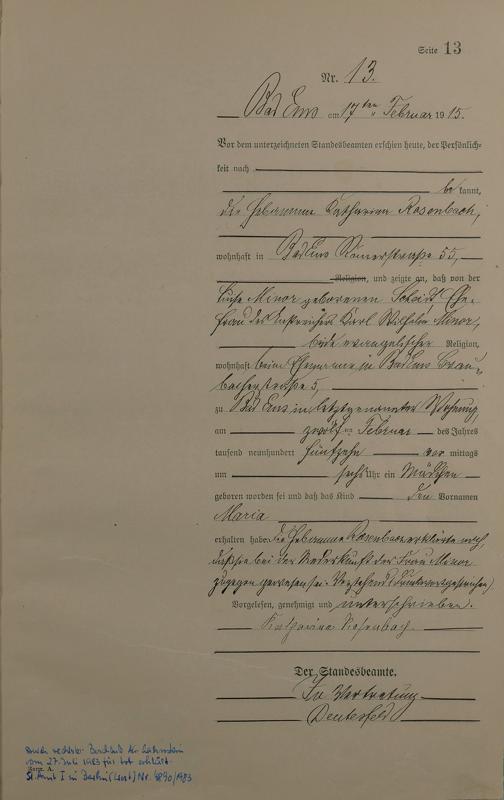 Seite 13
Nr. 13.
Bad Ems am 17ten Februar 1915.
Vor dem unterzeichneten Standesbeamten erschien heute, der Persönlich-
keit nach
bekannt,
die Hebamme Katharina Rosenbach,
wohnhaft in Bad Ems Römerstraße 55,
Religion, und zeigte an, daß von der
Minor geborenen Scheidt Ehe-
frau des Karl Wilhelm Minor,
beide evangelischer Religion,
wohnhaft beim Ehemanne in Bad Ems Brau-
bacherstraße 5,
zu Bad Ems in letztgenannter Wohnung,
am zwölften Februar des Jahres
tausend neunhundert fünfzehn vor mittags
um sechs Uhr ein Mädchen
geboren worden sei und daß das Kind den Vornamen
Maria
erhalten habe. Die Hebamme Rosenbach erklärte noch,
daß sie bei der Niederkunft der Frau Minor
zugegen gewesen sei. Vorstehend 1 Druckwort gestrichen.
Vorgelesen, genehmigt und unterschrieben.
Katharina Rosenbach.
Der Standesbeamte.
In Vertretung
Deutesfeld
durch
vom 27. Juli 1983 für tot erklärt.
St. Amt I in Berlin (West) Nr. 4890/1983